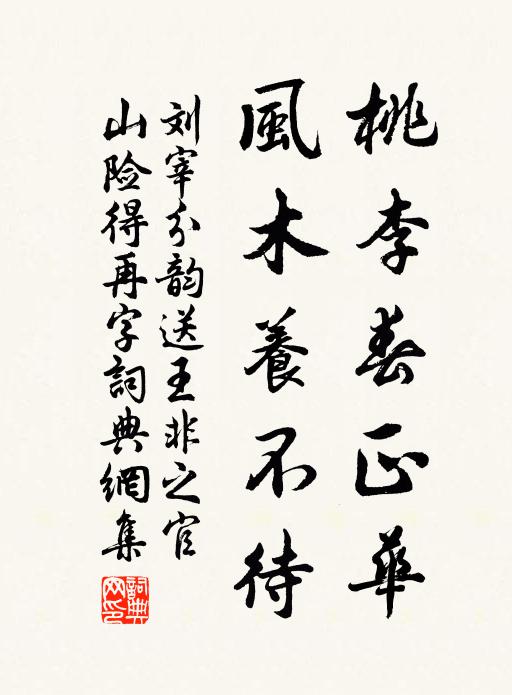 桃李春正華
風木養不待
刘宰分韵送王非之官
山险得再字詞典網集
詞典网印